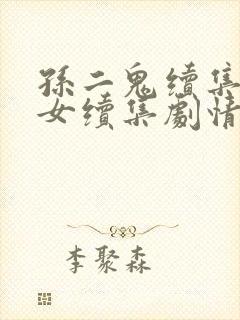 孫二鬼續集
女續集劇情
李聚森